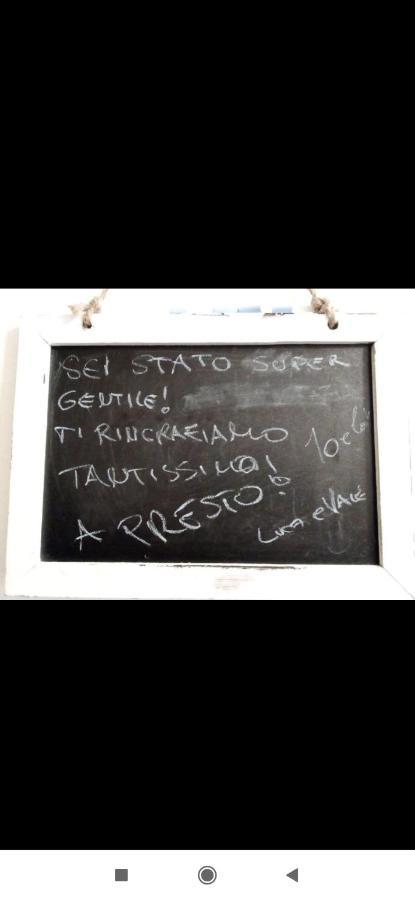 SEI STATO SUPER
GENTILE!
TI RINGRAZIAMO
TANTISSIMO!
A PRESTO!
LUCA e VALE